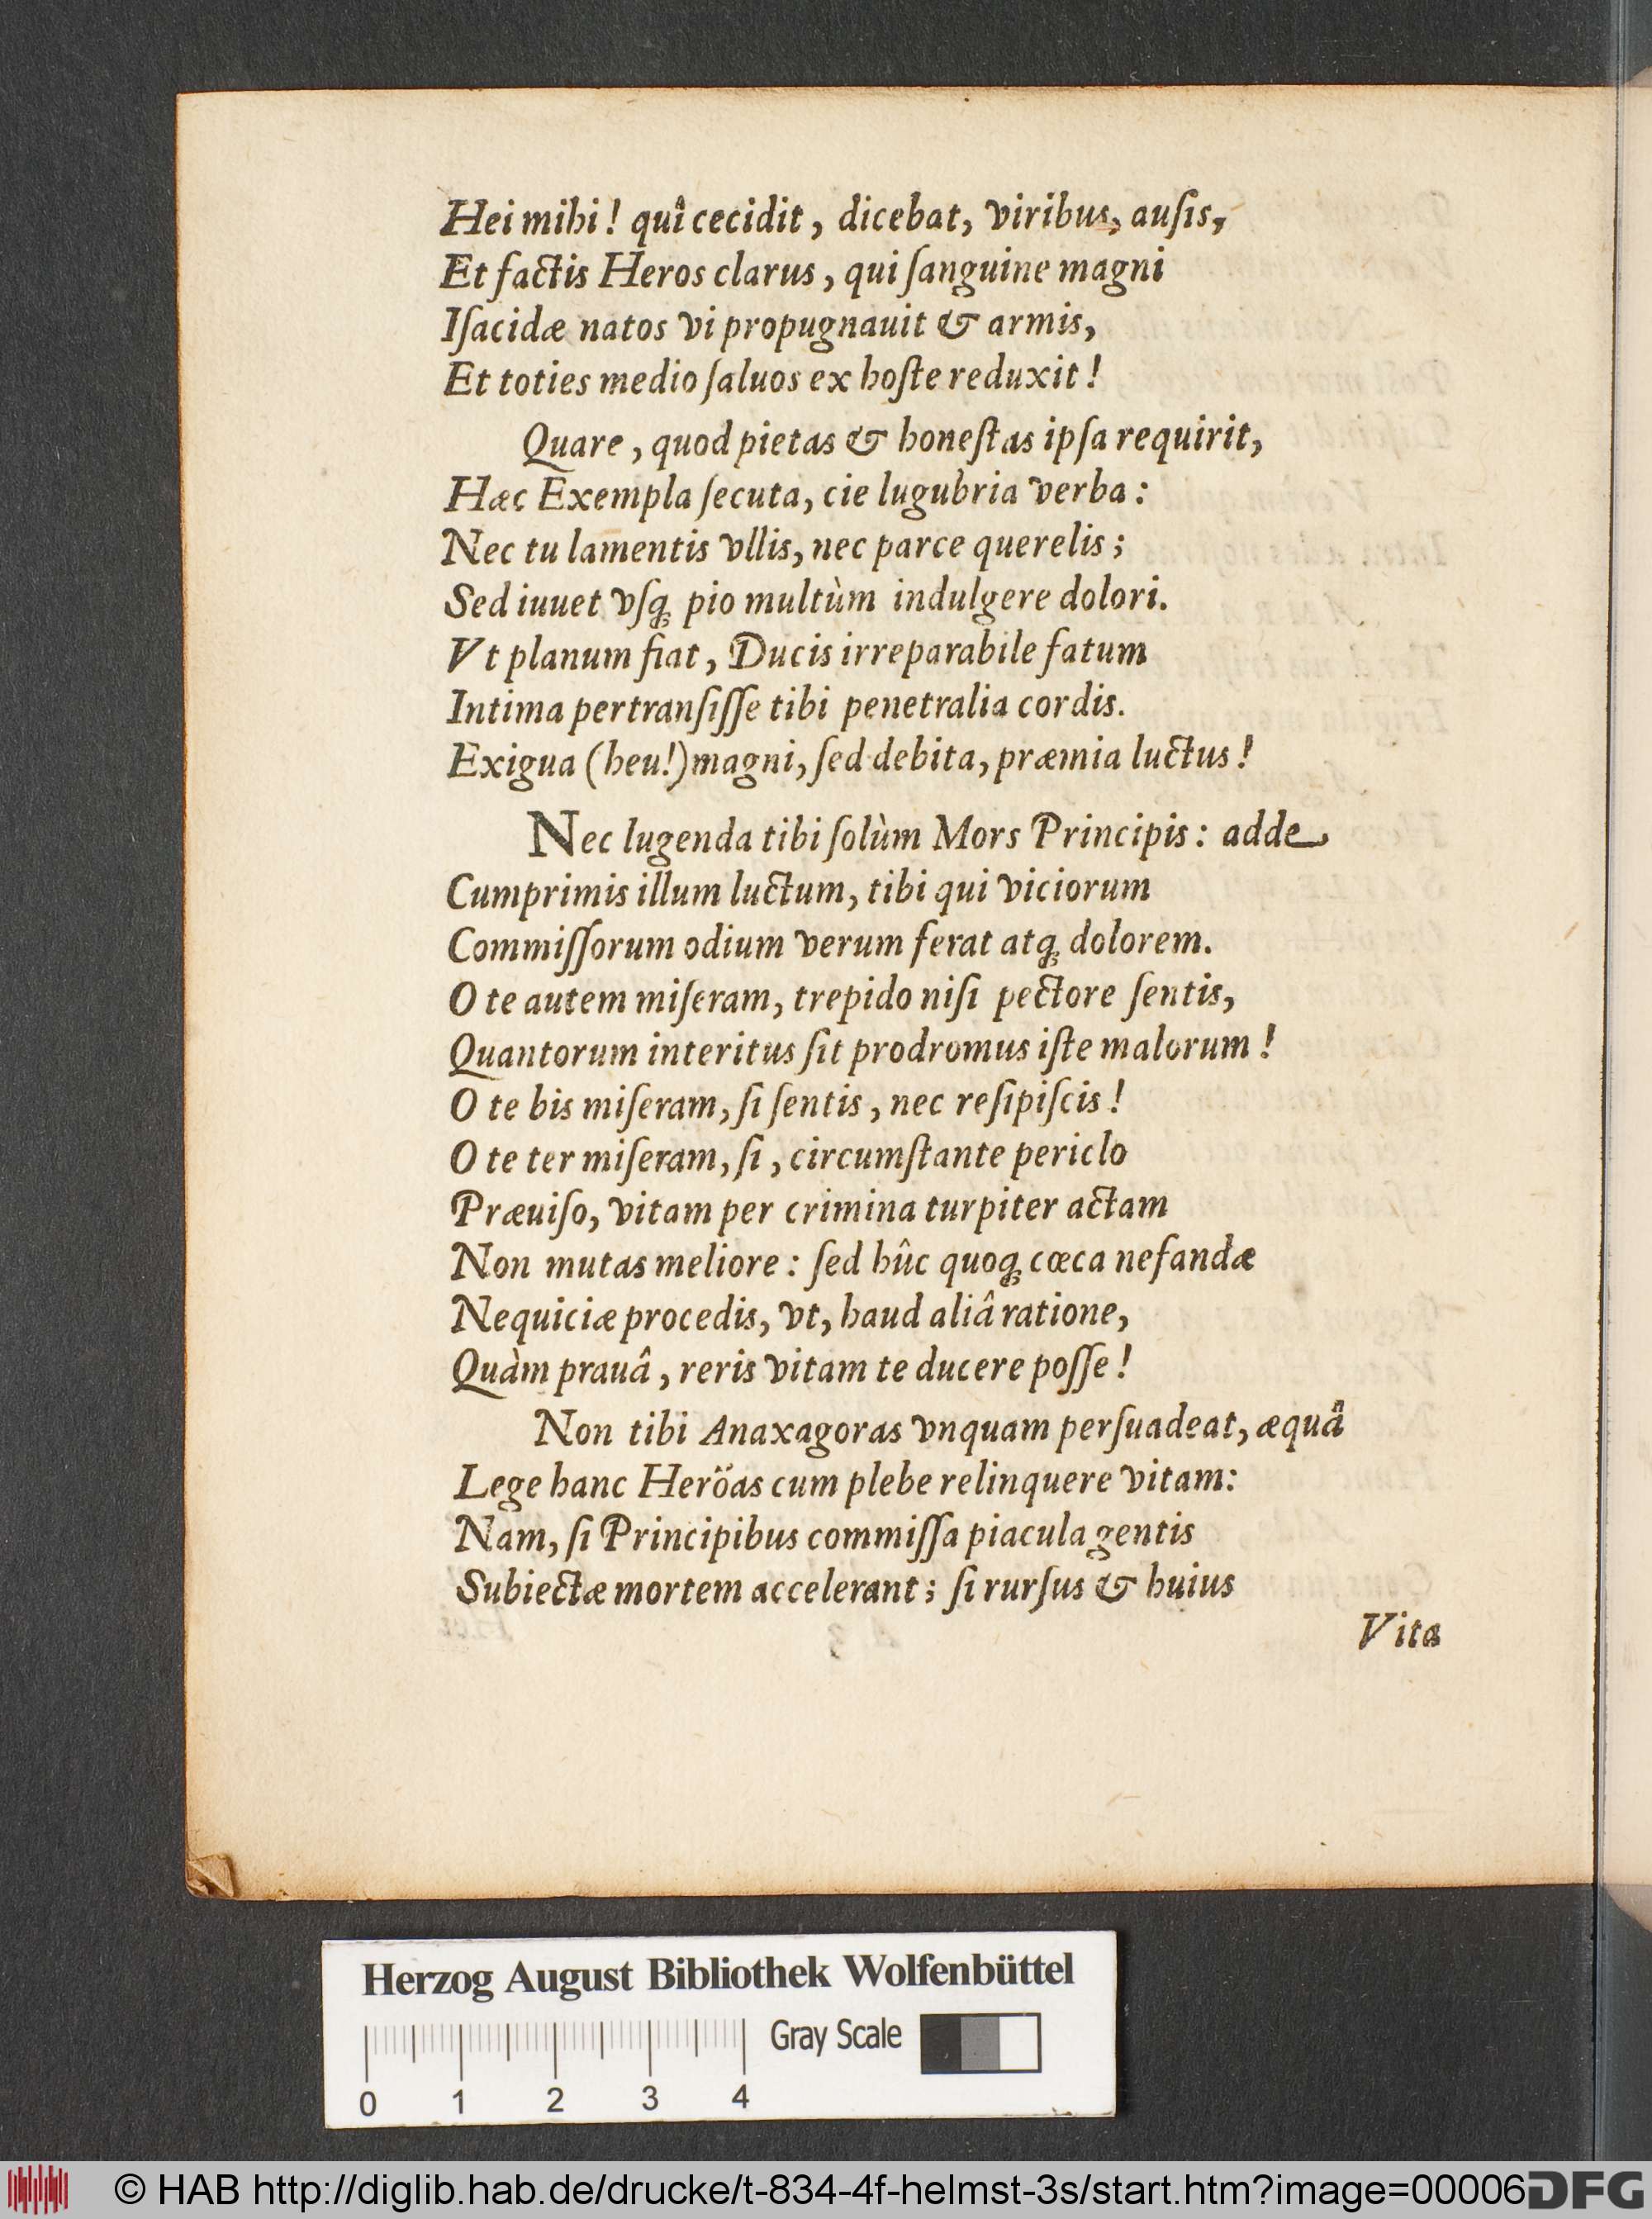 Hei mihi! quî cecidit, dicebat, viribus, auſis,
Et factis Heros clarus, qui ſanguine magni
Iſacidæ natos vi propugnauit & armis,
Et toties medio ſaluos ex hoſte reduxit!
Quare, quod pietas & honeſtas ipſa requirit,
Hæc Exempla ſecuta, cie lugubria verba:
Nec tu lamentis vllis, nec parce querelis;
Sed iuuet vſq́; pio multùm indulgere dolori.
Vt planum fiat, Ducis irreparabile fatum
Intima pertranſiſſe tibi penetralia cordis.
Exigua (heu!) magni, ſed debita, præmia luctus!
Nec lugenda tibi ſolùm Mors Principis: adde
Cumprimis illum luctum, tibi qui viciorum
Commiſſorum odium verum ferat atq; dolorem.
O te autem miſeram, trepido niſi pectore ſentis,
Quantorum interitus ſit prodromus iſte malorum!
O te bis miſeram, ſi ſentis, nec reſipiſcis!
O te ter miſeram, ſi, circumſtante periclo
Præuiſo, vitam per crimina turpiter actam
Non mutas meliore: ſed hûc quoq; cœca nefandæ
Nequiciæ procedis, vt, haud aliâ ratione,
Quàm prauâ, reris vitam te ducere poſſe!
Non tibi Anaxagoras vnquam perſuadeat, æquâ
Lege hanc Heröas cum plebe relinquere vitam:
Nam, ſi Principibus commiſſa piacula gentis
Subiectæ mortem accelerant; ſi rurſus & huius
Vita
Herzog August Bibliothek Wolfenbüttel
Gray Scale
0 1 2 3 4
© HAB http://diglib.hab.de/drucke/t-834-4f-helmst-3s/start.htm?image=00006
DFG